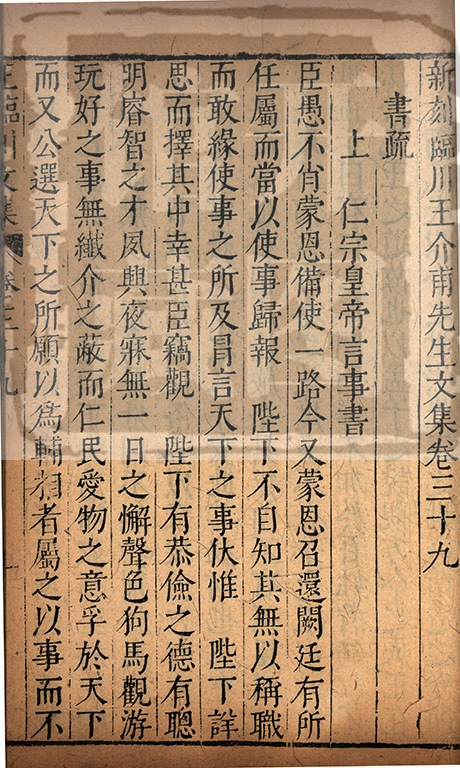 新刻臨川王介甫先生文集卷三十九
書疏
上 仁宗皇帝言事書
臣愚不肖蒙恩備使一路今又蒙恩召還闕廷有所
任屬而當以使事歸報 陛下不自知其無以稱職
而敢緣使事之所及冐言天下之事伏惟 陛下詳
思而擇其中幸甚臣竊觀 陛下有恭儉之德有聰
明睿智之才夙興夜寐無一日之懈聲色狗馬觀游
玩好之事無纖介之蔽而仁民愛物之意孚於天下
而又公選天下之所願以爲輔相者屬之以事而不
王臨川文集 卷三十九 一